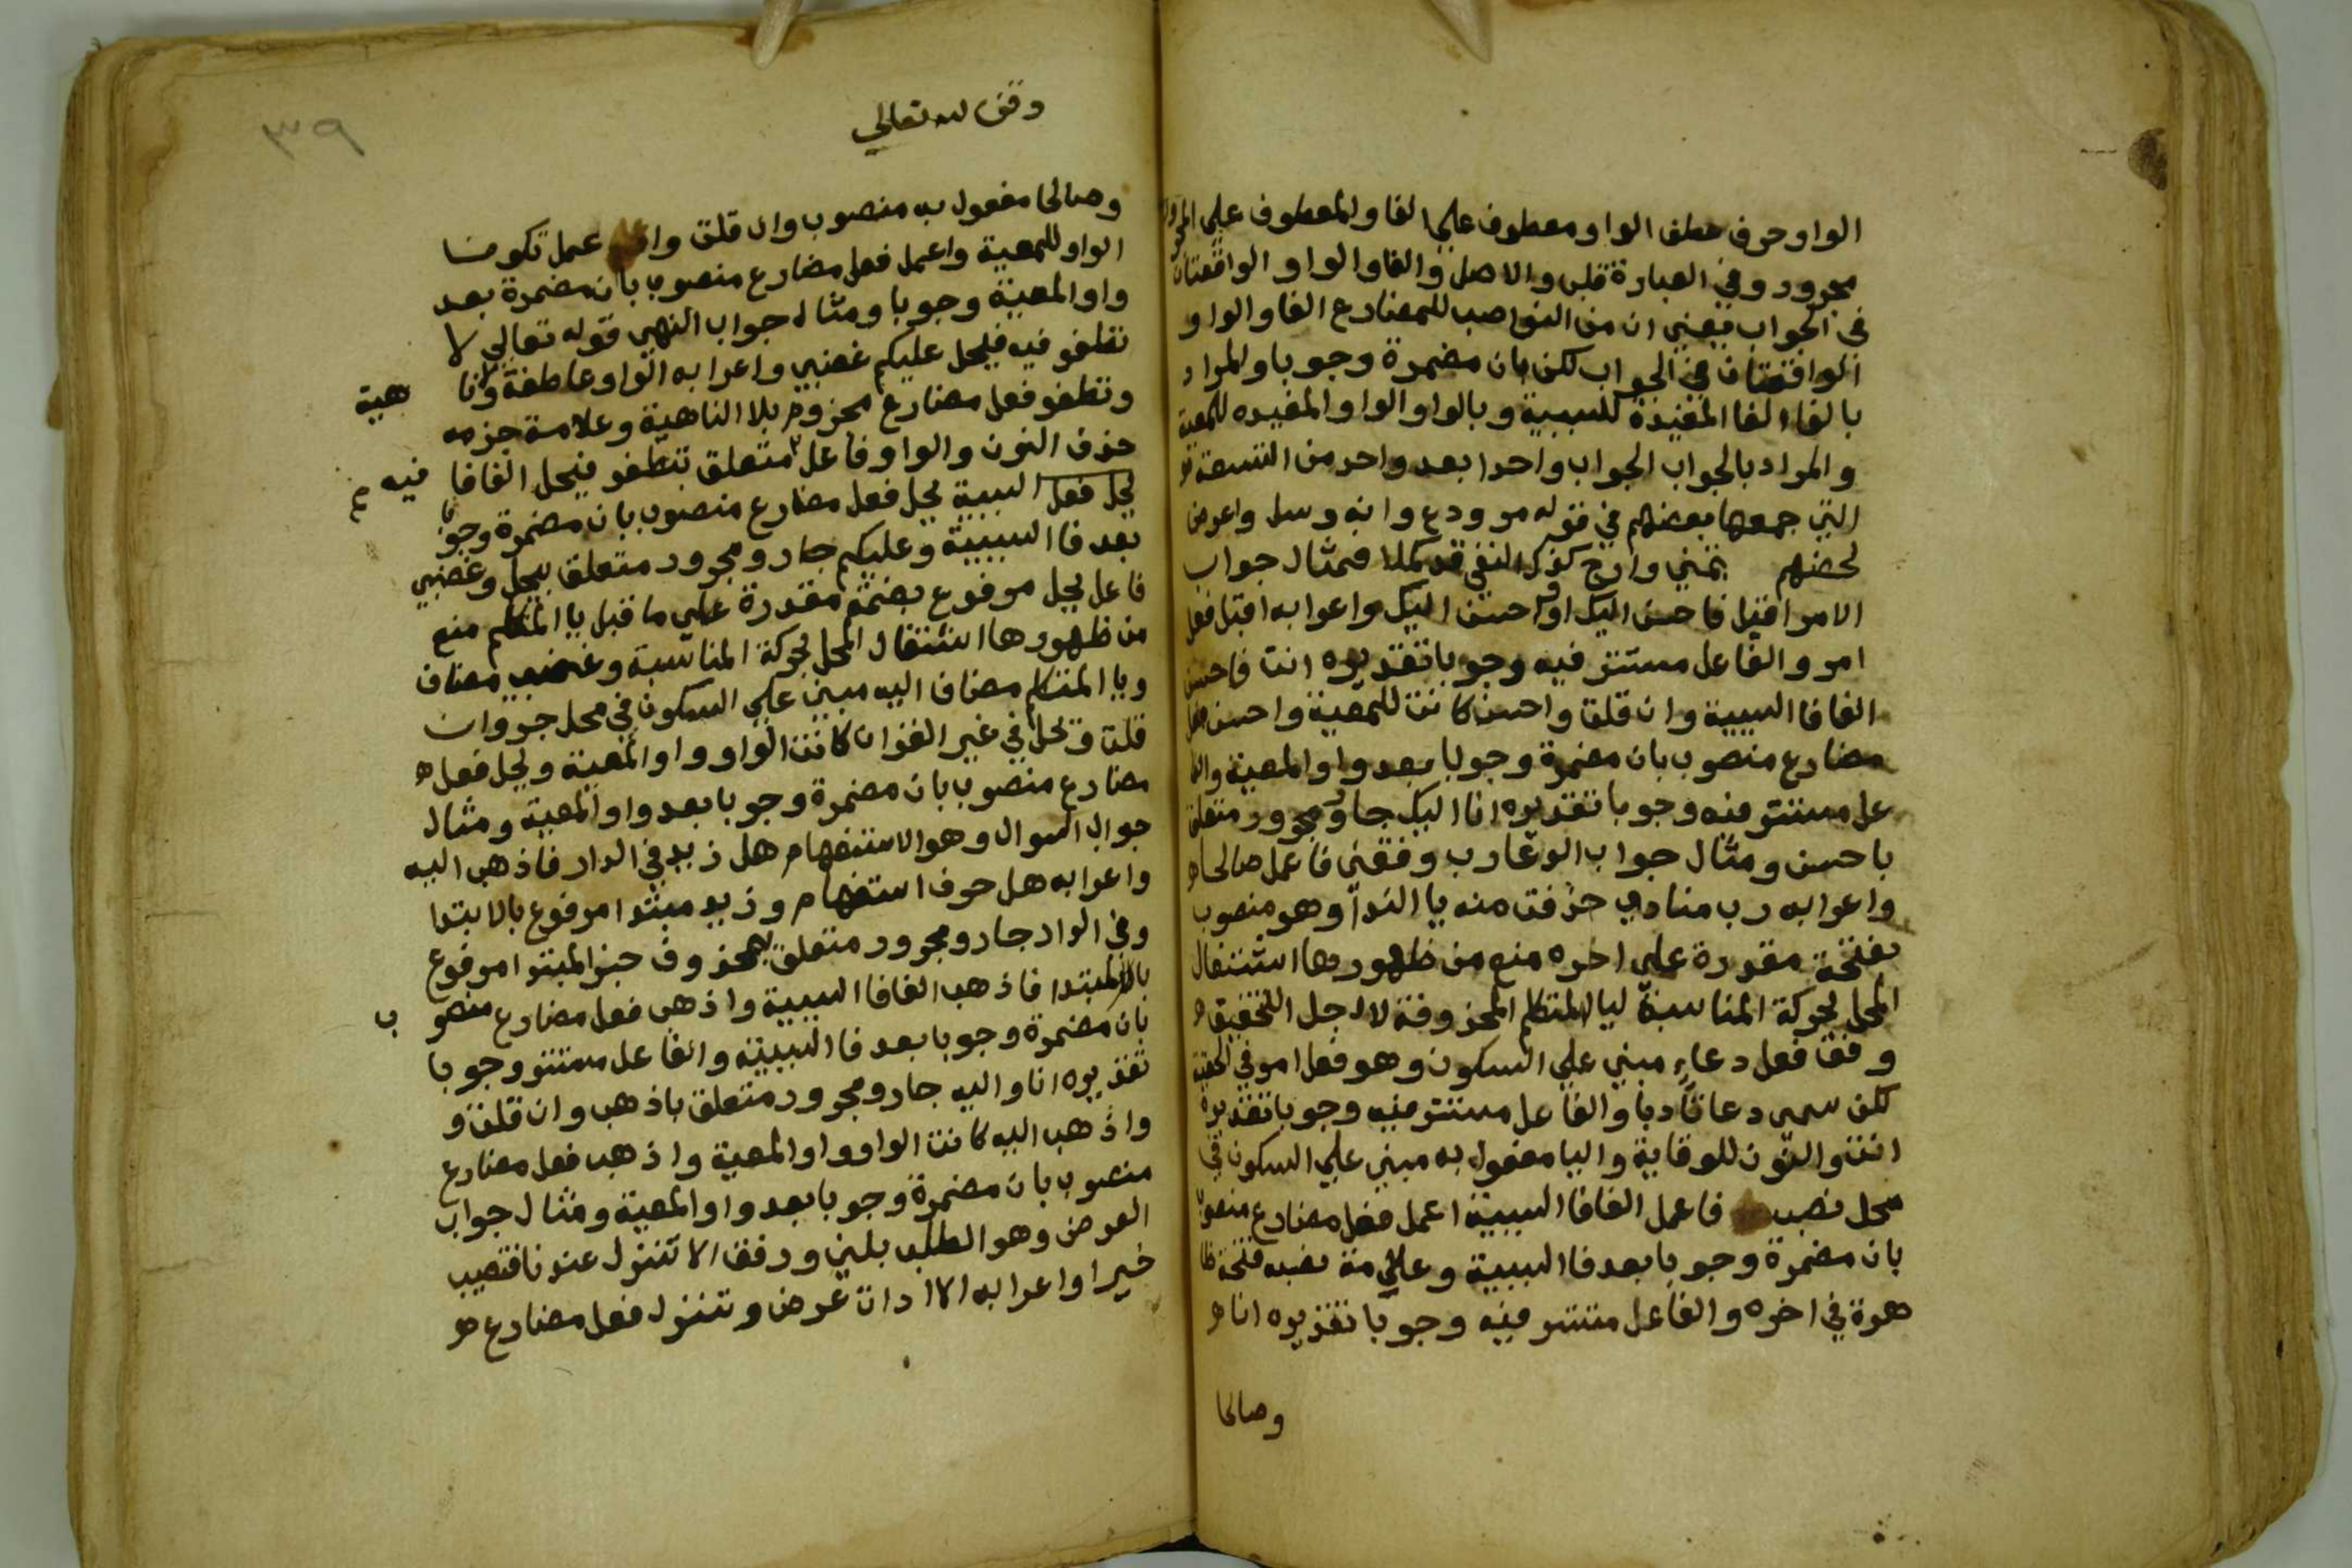 الواو حرف عطف الواو معطوف علي الفا والمعطوف علي المجرور
مجرور وفي العبارة قلب والاصل والفا والواو الواقعتان
في الجواب فيعني ان من النواصب للمضارع الفا والواو
الواقعتان في الجواب لكن بان مضمرة وجوبا والمراد
بالفاء الفا المفيدة للسببية وبالواو الواو المفيده للمعية
والمراد بالجواب الجواب واحدا بعد واحد من التسعة
التي جمعها بعضهم في قوله مر ودع وانه وسل واعرض
لحضهم تمني وارج كذك النفي قد كملا فمثال جواب
الامر اقبل فاحسن اليك او واحسن اليك واعرابه اقبل فعل
امر والفاعل مستتر فيه وجوبا تقديره انت فاحسن
الفا فا السببية وان قلت واحسن كانت للمعية واحسن فعل
مضارع منصوب بان مضمرة وجوبا بعد واو المعية والفا
عل مستتر فيه وجوبا تقديره انا اليك جار ومجرور متعلق
باحسن ومثال جواب الدعا رب وفقني فاعمل صالحا
واعرابه رب منادي حذفت منه يا الندا وهو منصوب
بفتحة مقدرة علي اخره منع من ظهورها اشتغال
المحل بحركة المناسبة ليا المتكلم المحذوفة لاجل التخفيف
وفق فعل دعاء مبني علي السكون وهو فعل امر في الحقيقة
لكن سمي دعا تادبا والفاعل مستتر فيه وجوبا تقديره
انت والنون للوقاية واليا مفعول به مبني علي السكون في
محل نصب فاعمل الفا فا السببية اعمل فعل مضارع منصوب
بان مضمرة وجوبا بعد فا السببية وعلامة نصبه فتحة ظا
هرة في اخره والفاعل مستتر فيه وجوبا تقديره انا
وصالحا
وقف لله تعالي
٣٩
وصالحا مفعول به منصوب وان قلت واعمل تكون
الواو للمعية واعمل فعل مضارع منصوب بان مضمرة بعد
واو المعية وجوبا ومثال جواب النهي قوله تعالي لا
تطغو فيه فيحل عليكم غضبي واعرابه الواو عاطفة ولا نا هية
وتطغو فعل مضارع مجزوم بلا الناهية وعلامة جزمه
حذف النون والواو فاعل متعلق بتطغو فيحل الفا فا فيه
يحل فعل السببية يحل فعل مضارع منصوب بان مضمرة وجوبا
بعد فا السببية وعليكم جار ومجرور متعلق بيحل وغضبي
فاعل يحل مرفوع بضمة مقدرة علي ما قبل يا المتكلم منع
من ظهورها اشتغال المحل بحركة المناسبة وغضب مضاف
ويا المتكلم مضاف اليه مبني علي السكون في محل جر وان
قلت وتحل في غير القران كانت الواو واو المعية ويحل فعل
مضارع منصوب بان مضمرة وجوبا بعد واو المعية ومثال
جواب السوال وهو الاستفهام هل زيد في الدار فاذهب اليه
واعرابه هل حرف استفهام وزيد مبتدا مرفوع بالابتدا
وفي الدار جار ومجرور متعلق بمحذوف خبر المبتدا مرفوع
بالمبتدا فاذهب الفا فا السببية واذهب فعل مضارع منصو ب
بان مضمرة وجوبا بعد فا السببية والفاعل مستتر وجوبا
تقديره انا واليه جار ومجرور متعلق باذهب وان قلت و
واذهب اليه كانت الواو واو المعية واذهب فعل مضارع
منصوب بان مضمرة وجوبا بعد واو المعية ومثال جواب
العرض وهو الطلب بلين ورفق الا تنزل عندنا فتصيب
خيرا واعرابه الا ادات عرض وتنزل فعل مضارع